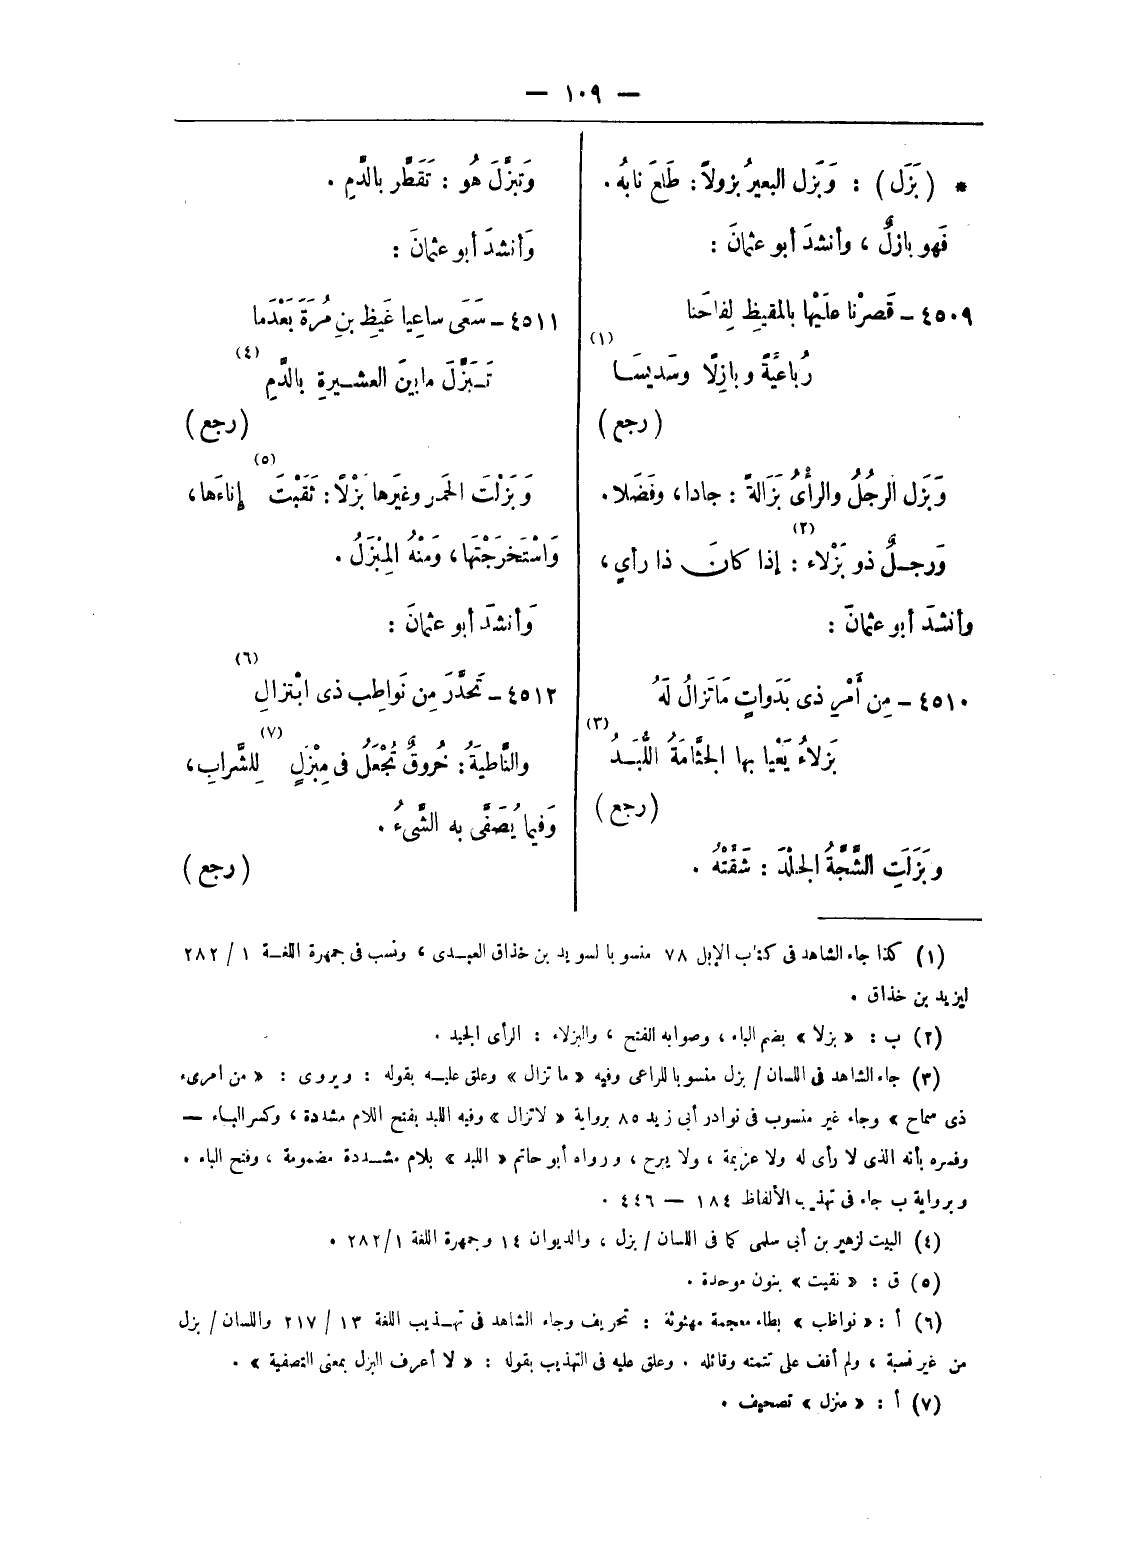 — ١٠٩ —
* (بَزَل) : وَبَزل البعيرُ بزولاً : طَلَعَ نابهُ .
فَهو بازلٌ ، وأنشدَ أبو عثمانَ :
٤٥٠٩ – قَصرْنا علَيْها بالمقيظِ لِقاحَنا
رُباعيَّةً وبازِلًا وسَديسَا (١)
(رجع)
وَبَزل الرجُلُ والرأىُ بَزَالةً : جادا ، وفَضَلا .
وَرجلٌ ذو بَزْلاء (٢) : إذا كانَ ذا رأىٍ ،
وأنشدَ أبو عثمانَ :
٤٥١٠ – مِن أَمْرِ ذى بَدَواتٍ مَاتَزالُ لَهُ
بَزلاءُ يَعْيا بها الجَثَّامَةُ اللُّبَدُ (٣)
(رجع)
وبَزَلَتِ الشَّجَّةُ الجلْدَ : شَقَّتْهُ .
وَتَبزَّلَ هُو : تَقَطَّر بالدَّمِ .
وَأنشدَ أبو عثمانَ :
٤٥١١ – سَعَى ساعِيا غَيظِ بنِ مُرَةَ بَعْدَما
تَبَزَّلَ مابينَ العشيرةِ بالدَّمِ (٤)
(رجع)
وَبَزلْتَ الخمر وغيَرها بَزْلًا : ثَقَبْتَ (٥) إناءَها ،
وَاسْتَخرَجْتَها ، وَمنْهُ المِبْزَلُ .
وَأنشدَ أبو عثمانَ :
٤٥١٢ – تَحدَّرَ مِن نَواطِب ذى ابْتزالِ (٦)
والنَّاطبَةُ : خُروقٌ تُجْعَلُ فى مِبْزَلٍ (٧) لِلشَّرابِ ،
وَفيما يُصَفَّى به الشَّىءُ .
(رجع)
(١) كذا جاء الشاهد فى كتاب الإبل ٧٨ منسوبا لسويد بن خذاق العبدى ، ونسب فى جمهرة اللغة ١/٢٨٢
ليزيد بن خذاق .
(٢) ب : « بزلا » بضم الباء ، وصوابه الفتح ، والبزلاء : الرأى الجيد .
(٣) جاء الشاهد فى اللسان / بزل منسوبا للراعى وفيه « ما تزال » وعلق عليه بقوله : ويروى : « من أمرىء
ذى سماح » وجاء غير منسوب فى نوادر أبى زيد ٨٥ برواية « لاتزال » وفيه اللبد بفتح اللام مشددة ، وكسر الباء —
وفسره بأنه الذى لا رأى له ولا عزيمة ، ولا يبرح ، ورواه أبو حاتم « اللبد » بلام مشددة مضمومة ، وفتح الباء .
وبرواية ب جاء فى تهذيب الألفاظ ١٨٤ — ٤٤٦ .
(٤) البيت لزهير بن أبى سلمى كما فى اللسان / بزل ، والديوان ١٤ وجمهرة اللغة ١/٢٨٢ .
(٥) ق : « نقيت » بنون موحدة .
(٦) أ : « نواظب » بظاء معجمة مهثوثة : تحريف وجاء الشاهد فى تهذيب اللغة ١٣ / ٢١٧ واللسان / بزل
من غير نسبة ، ولم أقف على تتمته وقائله . وعلق عليه فى التهذيب بقوله : « لا أعرف البزل بمعنى التصفية » .
(٧) أ : « منزل » تصحيف .